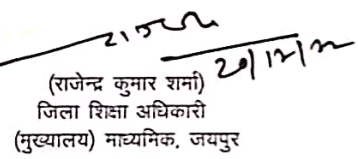 (राजेन्द्र कुमार शर्मा)
जिला शिक्षा अधिकारी
(मुख्यालय) माध्यमिक, जयपुर